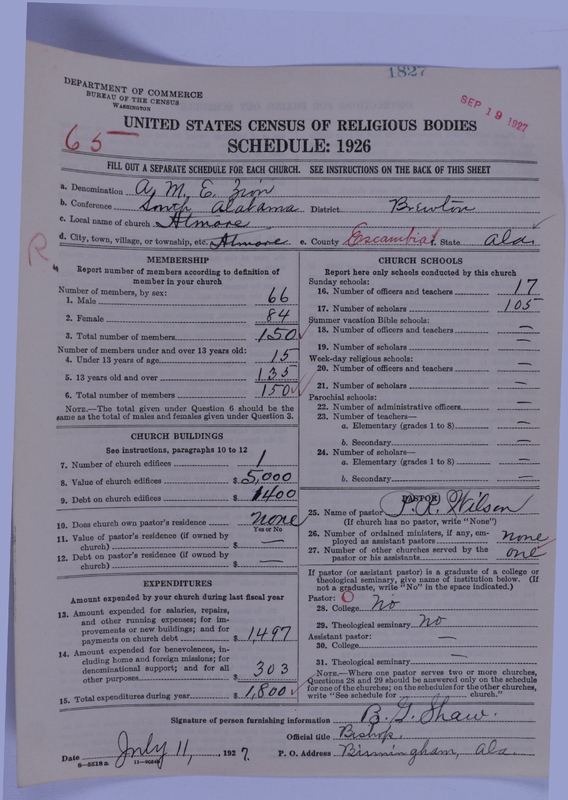 1827
DEPARTMENT OF COMMERCE
BUREAU OF THE CENSUS
WASHINGTON
SEP 19 1927
65
UNITED STATES CENSUS OF RELIGIOUS BODIES
SCHEDULE: 1926
FILL OUT A SEPARATE SCHEDULE FOR EACH CHURCH. SEE INSTRUCTIONS ON THE BACK OF THIS SHEET
a. Denomination A. M. E. Zion
b. Conference South Alabama District Brewton
c. Local name of church Atmore
d. City, town, village, or township, etc. Atmore e. County Escambia f. State Ala.
R
MEMBERSHIP
Report number of members according to definition of
member in your church
Number of members, by sex:
1. Male 66
2. Female 84
3. Total number of members 150
Number of members under and over 13 years old:
4. Under 13 years of age 15
5. 13 years old and over 135
6. Total number of members 150
NOTE.—The total given under Question 6 should be the
same as the total of males and females given under Question 3.
CHURCH BUILDINGS
See instructions, paragraphs 10 to 12
7. Number of church edifices 1
8. Value of church edifices $ 5,000
9. Debt on church edifices $ 1400
10. Does church own pastor's residence none
Yes or No
11. Value of pastor's residence (if owned by
church) $ —
12. Debt on pastor's residence (if owned by
church) $ —
EXPENDITURES
Amount expended by your church during last fiscal year
13. Amount expended for salaries, repairs,
and other running expenses; for im-
provements or new buildings; and for
payments on church debt $ 1,497
14. Amount expended for benevolences, in-
cluding home and foreign missions; for
denominational support; and for all
other purposes $ 303
15. Total expenditures during year $ 1,800
CHURCH SCHOOLS
Report here only schools conducted by this church
Sunday schools:
16. Number of officers and teachers 17
17. Number of scholars 105
Summer vacation Bible schools:
18. Number of officers and teachers —
19. Number of scholars —
Week-day religious schools:
20. Number of officers and teachers —
21. Number of scholars —
Parochial schools:
22. Number of administrative officers —
23. Number of teachers—
a. Elementary (grades 1 to 8) —
b. Secondary —
24. Number of scholars—
a. Elementary (grades 1 to 8) —
b. Secondary —
PASTOR
25. Name of pastor Wilson
(If church has no pastor, write "None")
26. Number of ordained ministers, if any, em-
ployed as assistant pastors none
27. Number of other churches served by the
pastor or his assistants one
If pastor (or assistant pastor) is a graduate of a college or
theological seminary, give name of institution below. (If
not a graduate, write "No" in the space indicated.)
Pastor: O
28. College No
29. Theological seminary No
Assistant pastor: —
30. College
31. Theological seminary —
NOTE.—Where one pastor serves two or more churches,
Questions 28 and 29 should be answered only on the schedule
for one of the churches; on the schedules for the other churches,
write "See schedule for church."
Signature of person furnishing information B. G. Shaw.
Official title Bishop.
Date July 11, 1927. P. O. Address Birmingham, Ala.